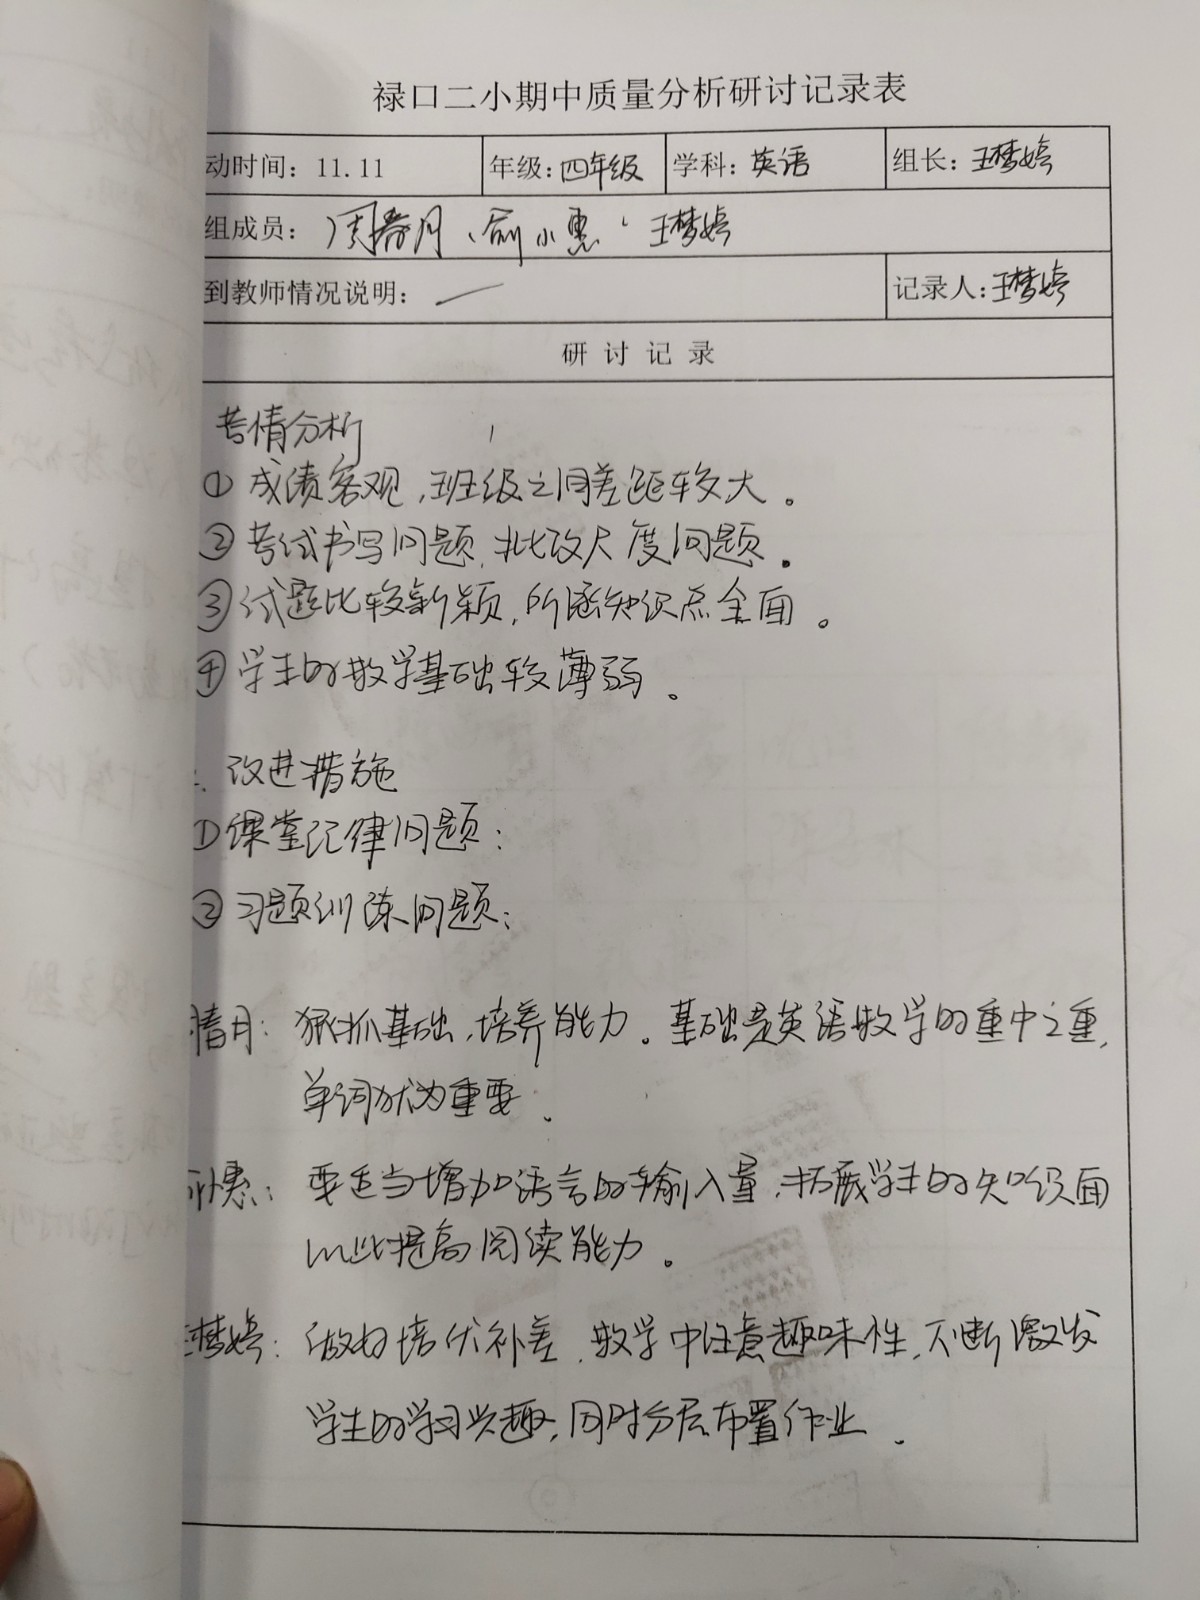 禄口二小期中质量分析研讨记录表
动时间：11.11 年级：四年级 学科：英语 组长：王梦婷
组成员：周春月、俞小惠、王梦婷
到教师情况说明： 记录人：王梦婷
研讨记录
考情分析
①成绩客观，班级之间差距较大。
②考试书写问题，批改尺度问题。
③试题比较新颖，所涵知识点全面。
④学生的教学基础较薄弱。
、改进措施
①课堂纪律问题：
②习题训练问题：
春月：狠抓基础，培养能力。基础是英语教学的重中之重，
单词尤为重要。
小惠：要适当增加语言的输入量，拓展学生的知识面
以此提高阅读能力。
王梦婷：做好培优补差，教学中注意趣味性，不断激发
学生的学习兴趣，同时分层布置作业。